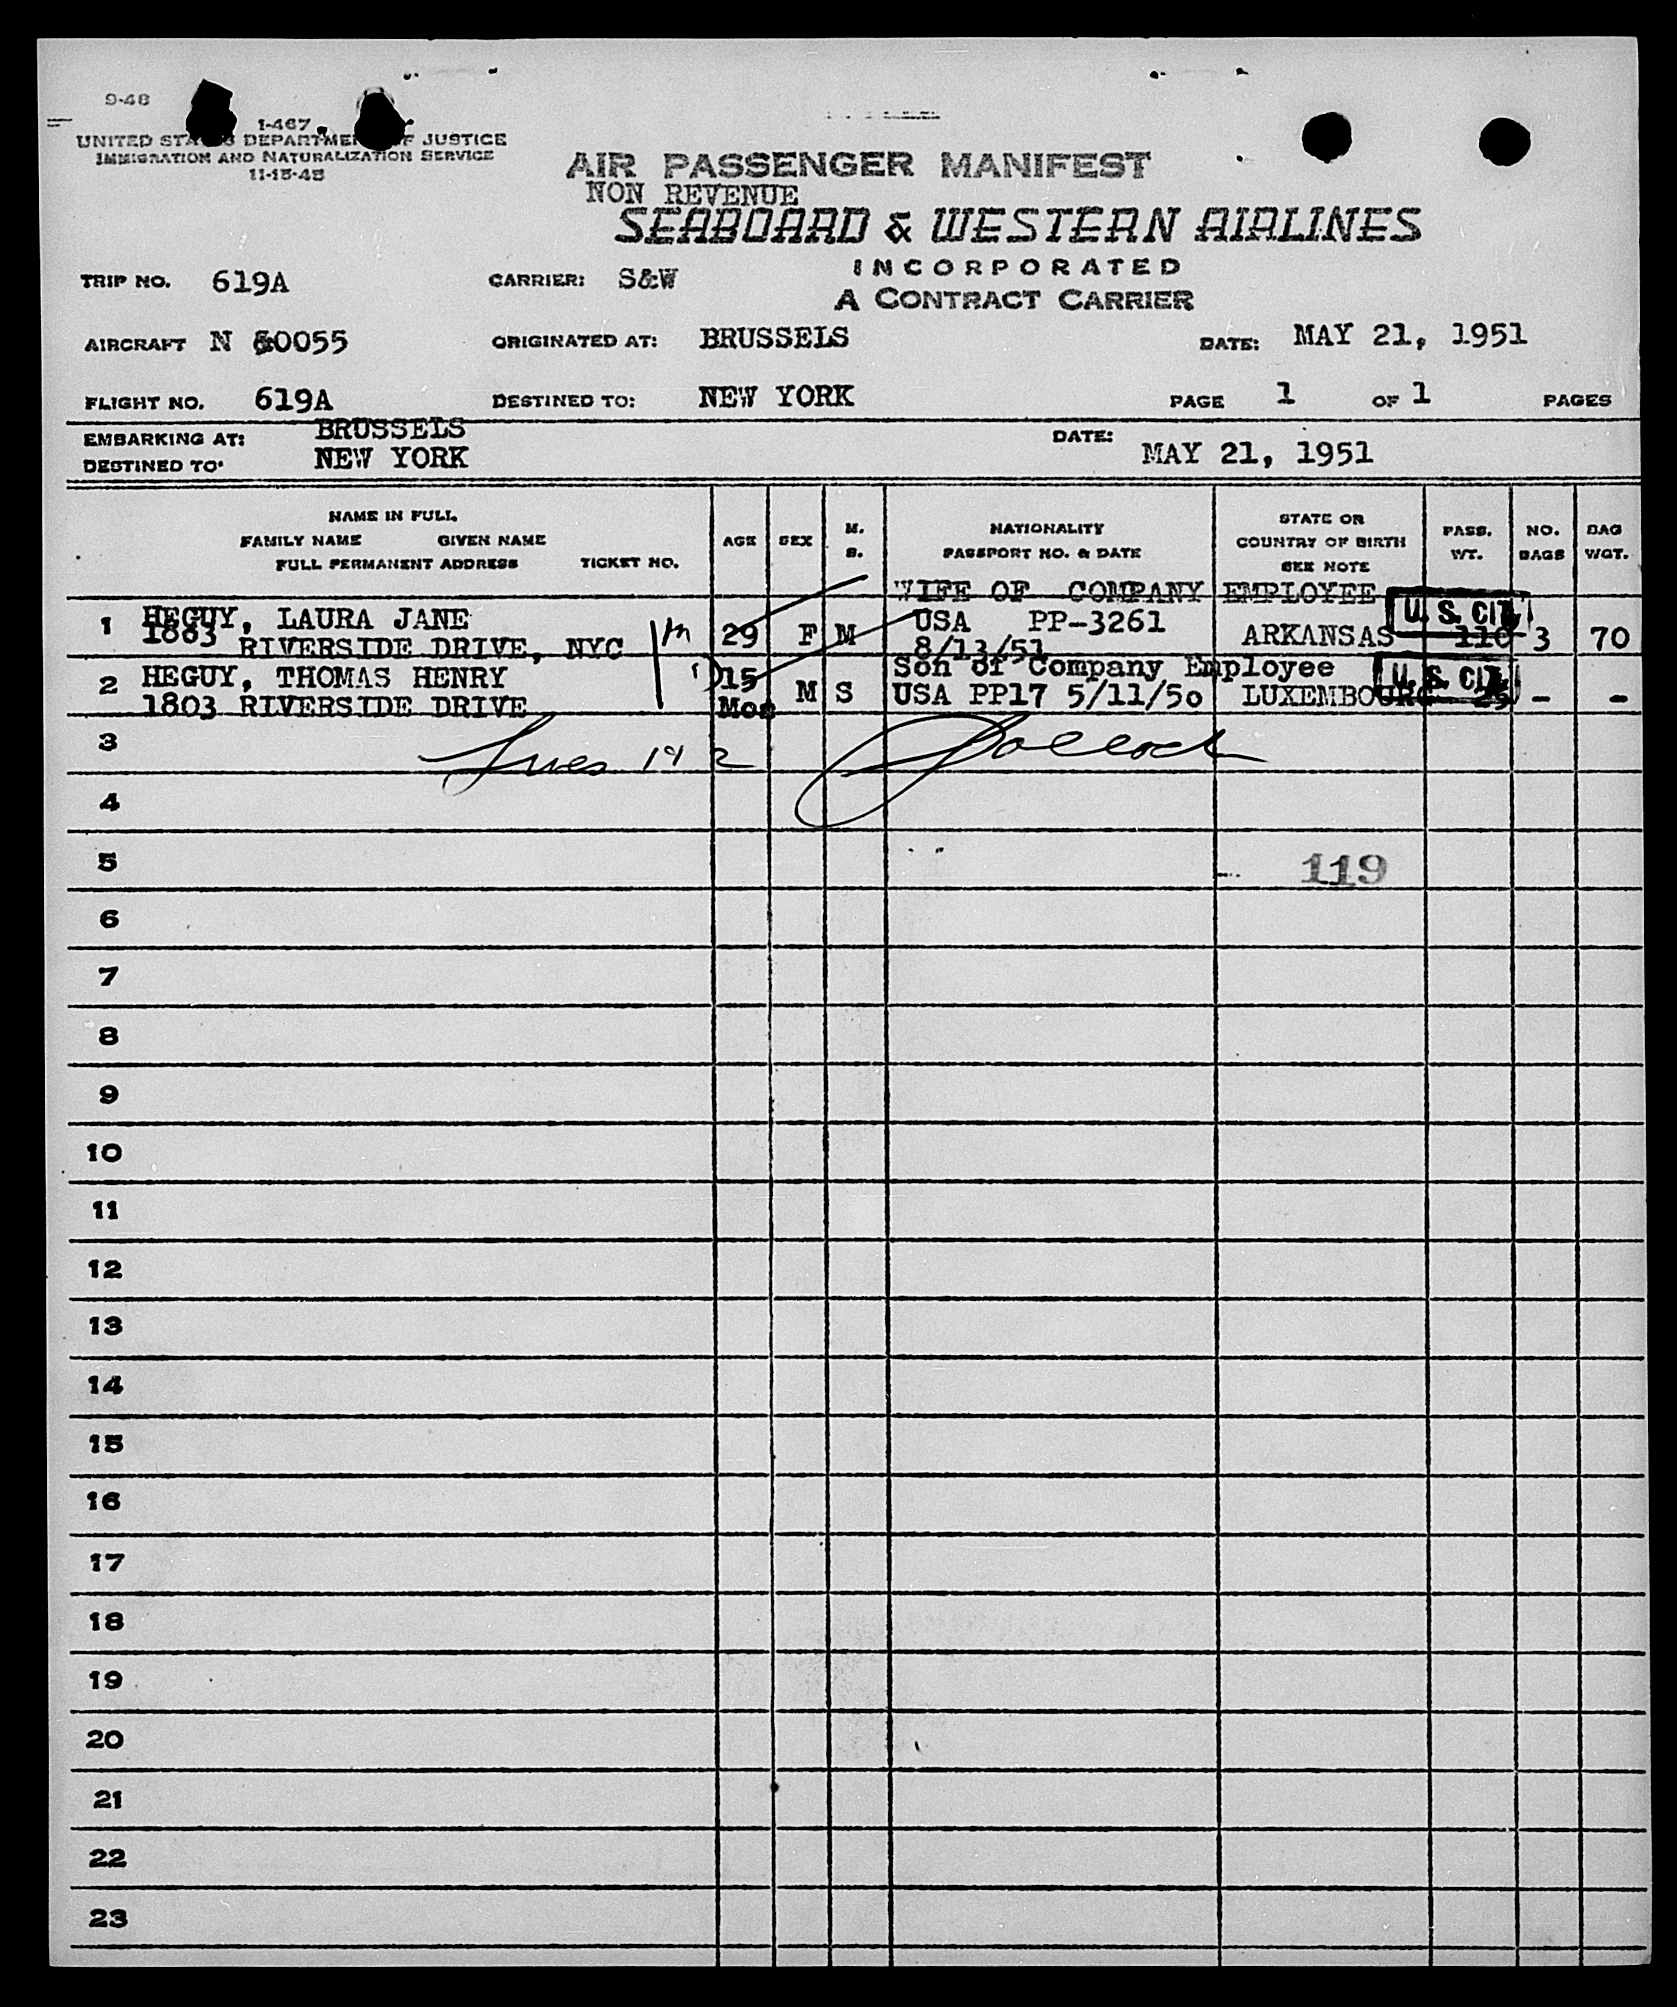 9-48
1-467
UNITED STATES DEPARTMENT OF JUSTICE
IMMIGRATION AND NATURALIZATION SERVICE
11-15-45
AIR PASSENGER MANIFEST
NON REVENUE
SEABOARD & WESTERN AIRLINES
INCORPORATED
A CONTRACT CARRIER
TRIP NO. 619A CARRIER: S&W
AIRCRAFT N 0055 ORIGINATED AT: BRUSSELS DATE: MAY 21, 1951
FLIGHT NO. 619A DESTINED TO: NEW YORK PAGE 1 OF 1 PAGES
EMBARKING AT: BRUSSELS DATE: MAY 21, 1951
DESTINED TO: NEW YORK
NAME IN FULL
FAMILY NAME GIVEN NAME
FULL PERMANENT ADDRESS TICKET NO.
AGE SEX M. S.
NATIONALITY
PASSPORT NO. & DATE
STATE OR
COUNTRY OF BIRTH
SEE NOTE
PASS. WT.
NO. BAGS
BAG WGT.
WIFE OF COMPANY EMPLOYEE
1 HEGUY, LAURA JANE 29 F M USA PP-3261 ARKANSAS U.S. CIT. 110 3 70
1803 RIVERSIDE DRIVE, NYC 8/13/51
Son of Company Employee
2 HEGUY, THOMAS HENRY 15 Mos M S USA PP17 5/11/50 LUXEMBOURG U.S. CIT. 25 - -
1803 RIVERSIDE DRIVE
3
4
5 119
6
7
8
9
10
11
12
13
14
15
16
17
18
19
20
21
22
23